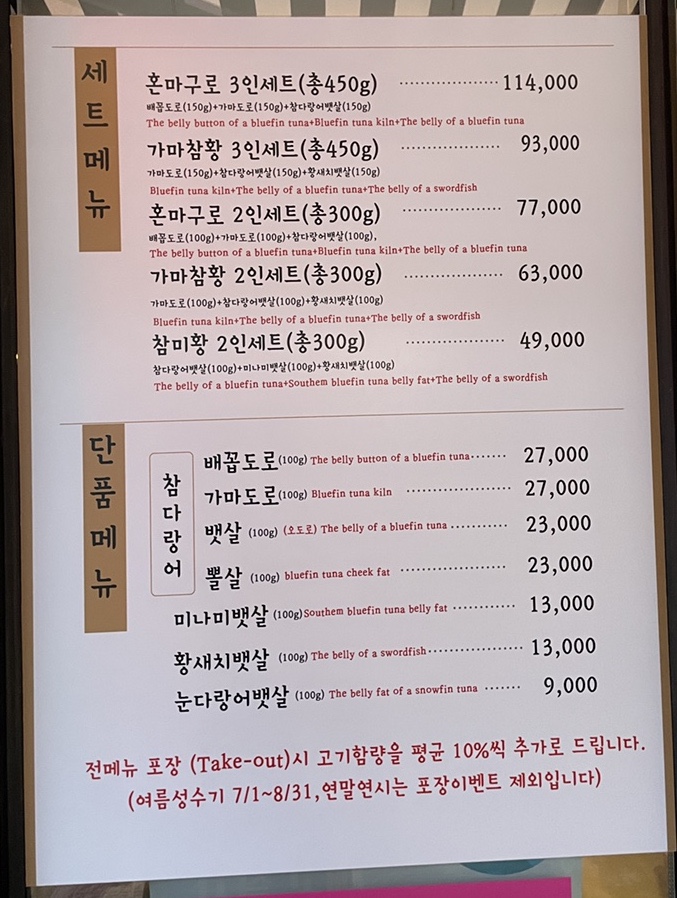 세트메뉴
혼마구로 3인세트(총450g) ·················· 114,000
배꼽도로(150g)+가마도로(150g)+참다랑어뱃살(150g)
The belly button of a bluefin tuna+Bluefin tuna kiln+The belly of a bluefin tuna
가마참황 3인세트(총450g) ·················· 93,000
가마도로(150g)+참다랑어뱃살(150g)+황새치뱃살(150g)
Bluefin tuna kiln+The belly of a bluefin tuna+The belly of a swordfish
혼마구로 2인세트(총300g) ·················· 77,000
배꼽도로(100g)+가마도로(100g)+참다랑어뱃살(100g),
The belly button of a bluefin tuna+Bluefin tuna kiln+The belly of a bluefin tuna
가마참황 2인세트(총300g) ·················· 63,000
가마도로(100g)+참다랑어뱃살(100g)+황새치뱃살(100g)
Bluefin tuna kiln+The belly of a bluefin tuna+The belly of a swordfish
참미황 2인세트(총300g) ·················· 49,000
참다랑어뱃살(100g)+미나미뱃살(100g)+황새치뱃살(100g)
The belly of a bluefin tuna+Southem bluefin tuna belly fat+The belly of a swordfish
단품메뉴
참다랑어
배꼽도로(100g) The belly button of a bluefin tuna······· 27,000
가마도로(100g) Bluefin tuna kiln ··················· 27,000
뱃살 (100g) (오도로) The belly of a bluefin tuna ··········· 23,000
뽈살 (100g) bluefin tuna cheek fat ··················· 23,000
미나미뱃살(100g)Southem bluefin tuna belly fat ············ 13,000
황새치뱃살 (100g) The belly of a swordfish················· 13,000
눈다랑어뱃살 (100g) The belly fat of a snowfin tuna ······· 9,000
전메뉴 포장 (Take-out)시 고기함량을 평균 10%씩 추가로 드립니다.
(여름성수기 7/1~8/31,연말연시는 포장이벤트 제외입니다)